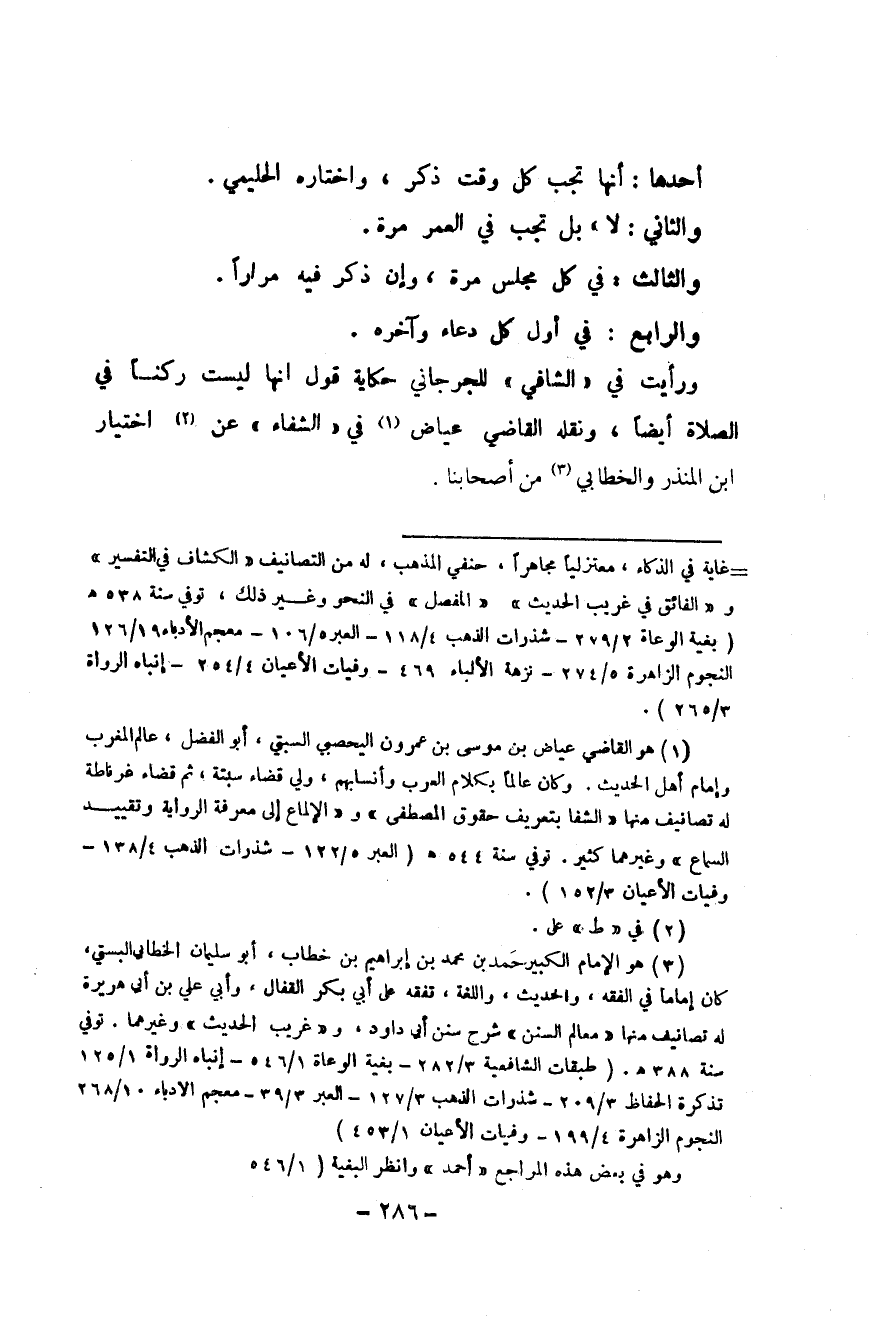 أحدها : أنها تجب كل وقت ذكر ، واختاره الحليمي .
والثاني : لا ، بل تجب في العمر مرة .
والثالث : في كل مجلس مرة ، وإن ذكر فيه مراراً .
والرابع : في أول كل دعاء وآخره .
ورأيت في « الشافي » للجرجاني حكاية قول انها ليست ركنـاً في
الصلاة أيضاً ، ونقله القاضي عياض (١) في « الشفاء » عن (٢) اختيار
ابن المنذر والخطابي (٣) من أصحابنا .
= غاية في الذكاء ، معتزلياً مجاهراً ، حنفي المذهب ، له من التصانيف « الكشاف في التفسير »
و « الفائق في غريب الحديث » « المفصل » في النحو وغـير ذلك ، توفي سنة ٥٣٨ هـ
( بغية الوعاة ٢٧٩/٢ – شذرات الذهب ١١٨/٤ – العبر ١٠٦/٥ – معجم الأدباء ١٢٦/١٩
النجوم الزاهرة ٢٧٤/٥ – نزهة الألباء ٤٦٩ – وفيات الأعيان ٢٥٤/٤ – إنباه الرواة
٢٦٥/٣ ) .
(١) هو القاضي عياض بن موسى بن عمرون اليحصبي السبتي ، أبو الفضل ، عالم المغرب
وإمام أهل الحديث . وكان عالماً بكلام العرب وأنسابهم ، ولي قضاء سبتة ، ثم قضاء غرناطة
له تصانيف منها « الشفا بتعريف حقوق المصطفى » و « الإلماع إلى معرفة الرواية وتقييـد
السماع » وغيرهما كثير . توفي سنة ٥٤٤ هـ ( العبر ١٢٢/٥ – شذرات الذهب ١٣٨/٤ –
وفيات الأعيان ١٥٢/٣ ) .
(٢) في « ط » على .
(٣) هو الإمام الكبير حَمد بن محمد بن إبراهيم بن خطاب ، أبو سليمان الخطابي البستي ،
كان إماماً في الفقه ، والحديث ، واللغة ، تفقه على أبي بكر القفال ، وأبي علي بن أبي هريرة
له تصانيف منها « معالم السنن » شرح سنن أبي داود ، و « غريب الحديث » وغيرهما . توفي
سنة ٣٨٨ هـ . ( طبقات الشافعية ٢٨٢/٣ – بغية الوعاة ٥٤٦/١ – إنباه الرواة ١٢٥/١
تذكرة الحفاظ ٢٠٩/٣ – شذرات الذهب ١٢٧/٣ – العبر ٣٩/٣ – معجم الادباء ٢٦٨/١٠
النجوم الزاهرة ١٩٩/٤ – وفيات الأعيان ٤٥٣/١ )
وهو في بعض هذه المراجع « أحمد » وانظر البغية ( ٥٤٦/١
– ٢٨٦ –